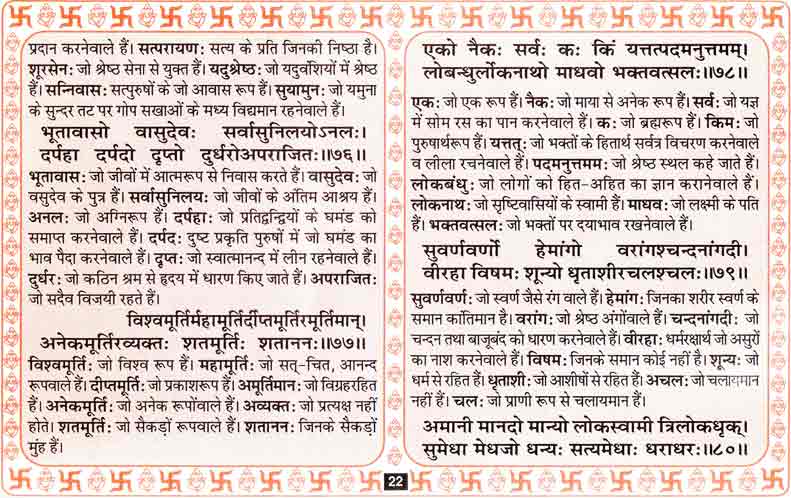 प्रदान करनेवाले हैं। सत्परायण: सत्य के प्रति जिनकी निष्ठा है।
शूरसेन: जो श्रेष्ठ सेना से युक्त हैं। यदुश्रेष्ठ: जो यदुवंशियों में श्रेष्ठ
हैं। सन्निवास: सत्पुरुषों के जो आवास रूप हैं। सुयामुन: जो यमुना
के सुन्दर तट पर गोप सखाओं के मध्य विद्यमान रहनेवाले हैं।
भूतावासो वासुदेवः सर्वासुनिलयोऽनलः।
दर्पहा दर्पदो दृप्तो दुर्धरोअपराजितः॥७६॥
भूतावास: जो जीवों में आत्मरूप से निवास करते हैं। वासुदेव: जो
वसुदेव के पुत्र हैं। सर्वासुनिलय: जो जीवों के अंतिम आश्रय हैं।
अनल: जो अग्निरूप हैं। दर्पहा: जो प्रतिद्वन्द्वियों के घमंड को
समाप्त करनेवाले हैं। दर्पद: दुष्ट प्रकृति पुरुषों में जो घमंड का
भाव पैदा करनेवाले हैं। दृप्त: जो स्वात्मानन्द में लीन रहनेवाले हैं।
दुर्धर: जो कठिन श्रम से हृदय में धारण किए जाते हैं। अपराजित:
जो सदैव विजयी रहते हैं।
विश्वमूर्तिर्महामूर्तिर्दीप्तमूर्तिरमूर्तिमान्।
अनेकमूर्तिरव्यक्तः शतमूर्तिः शताननः॥७७॥
विश्वमूर्ति: जो विश्व रूप हैं। महामूर्ति: जो सत्-चित, आनन्द
रूपवाले हैं। दीप्तमूर्ति: जो प्रकाशरूप हैं। अमूर्तिमान: जो विग्रहरहित
हैं। अनेकमूर्ति: जो अनेक रूपोंवाले हैं। अव्यक्त: जो प्रत्यक्ष नहीं
होते। शतमूर्ति: जो सैकड़ों रूपवाले हैं। शतानन: जिनके सैकड़ों
मुंह हैं।
एको नैकः सर्वः कः किं यत्तत्पदमनुत्तमम्।
लोबन्धुर्लोकनाथो माधवो भक्तवत्सलः॥७८॥
एक: जो एक रूप हैं। नैक: जो माया से अनेक रूप हैं। सर्व: जो यज्ञ
में सोम रस का पान करनेवाले हैं। क: जो ब्रह्मरूप हैं। किम: जो
पुरुषार्थरूप हैं। यत्तत्: जो भक्तों के हितार्थ सर्वत्र विचरण करनेवाले
व लीला रचनेवाले हैं। पदमनुत्तमम: जो श्रेष्ठ स्थल कहे जाते हैं।
लोकबंधु: जो लोगों को हित-अहित का ज्ञान करानेवाले हैं।
लोकनाथ: जो सृष्टिवासियों के स्वामी हैं। माधव: जो लक्ष्मी के पति
हैं। भक्तवत्सल: जो भक्तों पर दयाभाव रखनेवाले हैं।
सुवर्णवर्णो हेमांगो वरांगश्चन्दनांगदी।
वीरहा विषमः शून्यो धृताशीरचलश्चलः॥७९॥
सुवर्णवर्ण: जो स्वर्ण जैसे रंग वाले हैं। हेमांग: जिनका शरीर स्वर्ण के
समान कांतिमान है। वरांग: जो श्रेष्ठ अंगोंवाले हैं। चन्दनांगदी: जो
चन्दन तथा बाजूबंद को धारण करनेवाले हैं। वीरहा: धर्मरक्षार्थ जो असुरों
का नाश करनेवाले हैं। विषम: जिनके समान कोई नहीं है। शून्य: जो
धर्म से रहित हैं। धृताशी: जो आशीषों से रहित हैं। अचल: जो चलायमान
नहीं हैं। चल: जो प्राणी रूप से चलायमान हैं।
अमानी मानदो मान्यो लोकस्वामी त्रिलोकधृक्।
सुमेधा मेधजो धन्यः सत्यमेधाः धराधरः॥८०॥
22